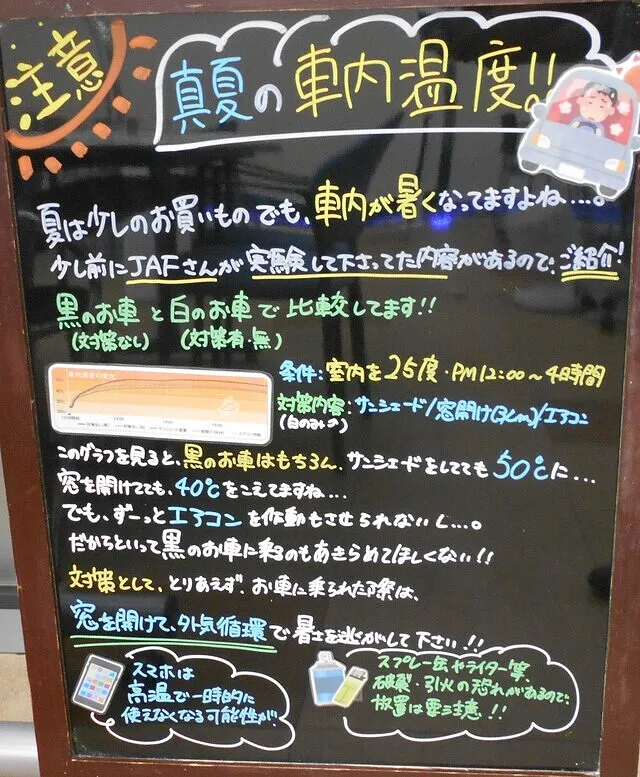 注意
真夏の車内温度!!
夏は少しのお買いものでも、車内が暑くなってますよね…。
少し前にJAFさんが実験して下さってた内容があるので、ご紹介!
黒のお車と白のお車で比較してます!!
(対策なし) (対策有・無)
条件:室内を25度・PM12:00〜4時間
対策内容:サンシェード/窓開け(3cm)/エアコン
(白のみ)
車内温度の変化
このグラフを見ると、黒のお車はもちろん、サンシェードをしてても50℃に…
窓を開けてても、40℃をこえてますね…
でも、ずーっとエアコンを作動もさせられないし…。
だからといって黒のお車に乗るのもあきらめてほしくない!!
対策として、とりあえず、お車に乗られた際は、
窓を開けて、外気循環で暑さを逃がして下さい!!
スマホは
高温で一時的に
使えなくなる可能性が
スプレー缶やライター等、
破裂・引火の恐れがあるので、
放置は要注意!!